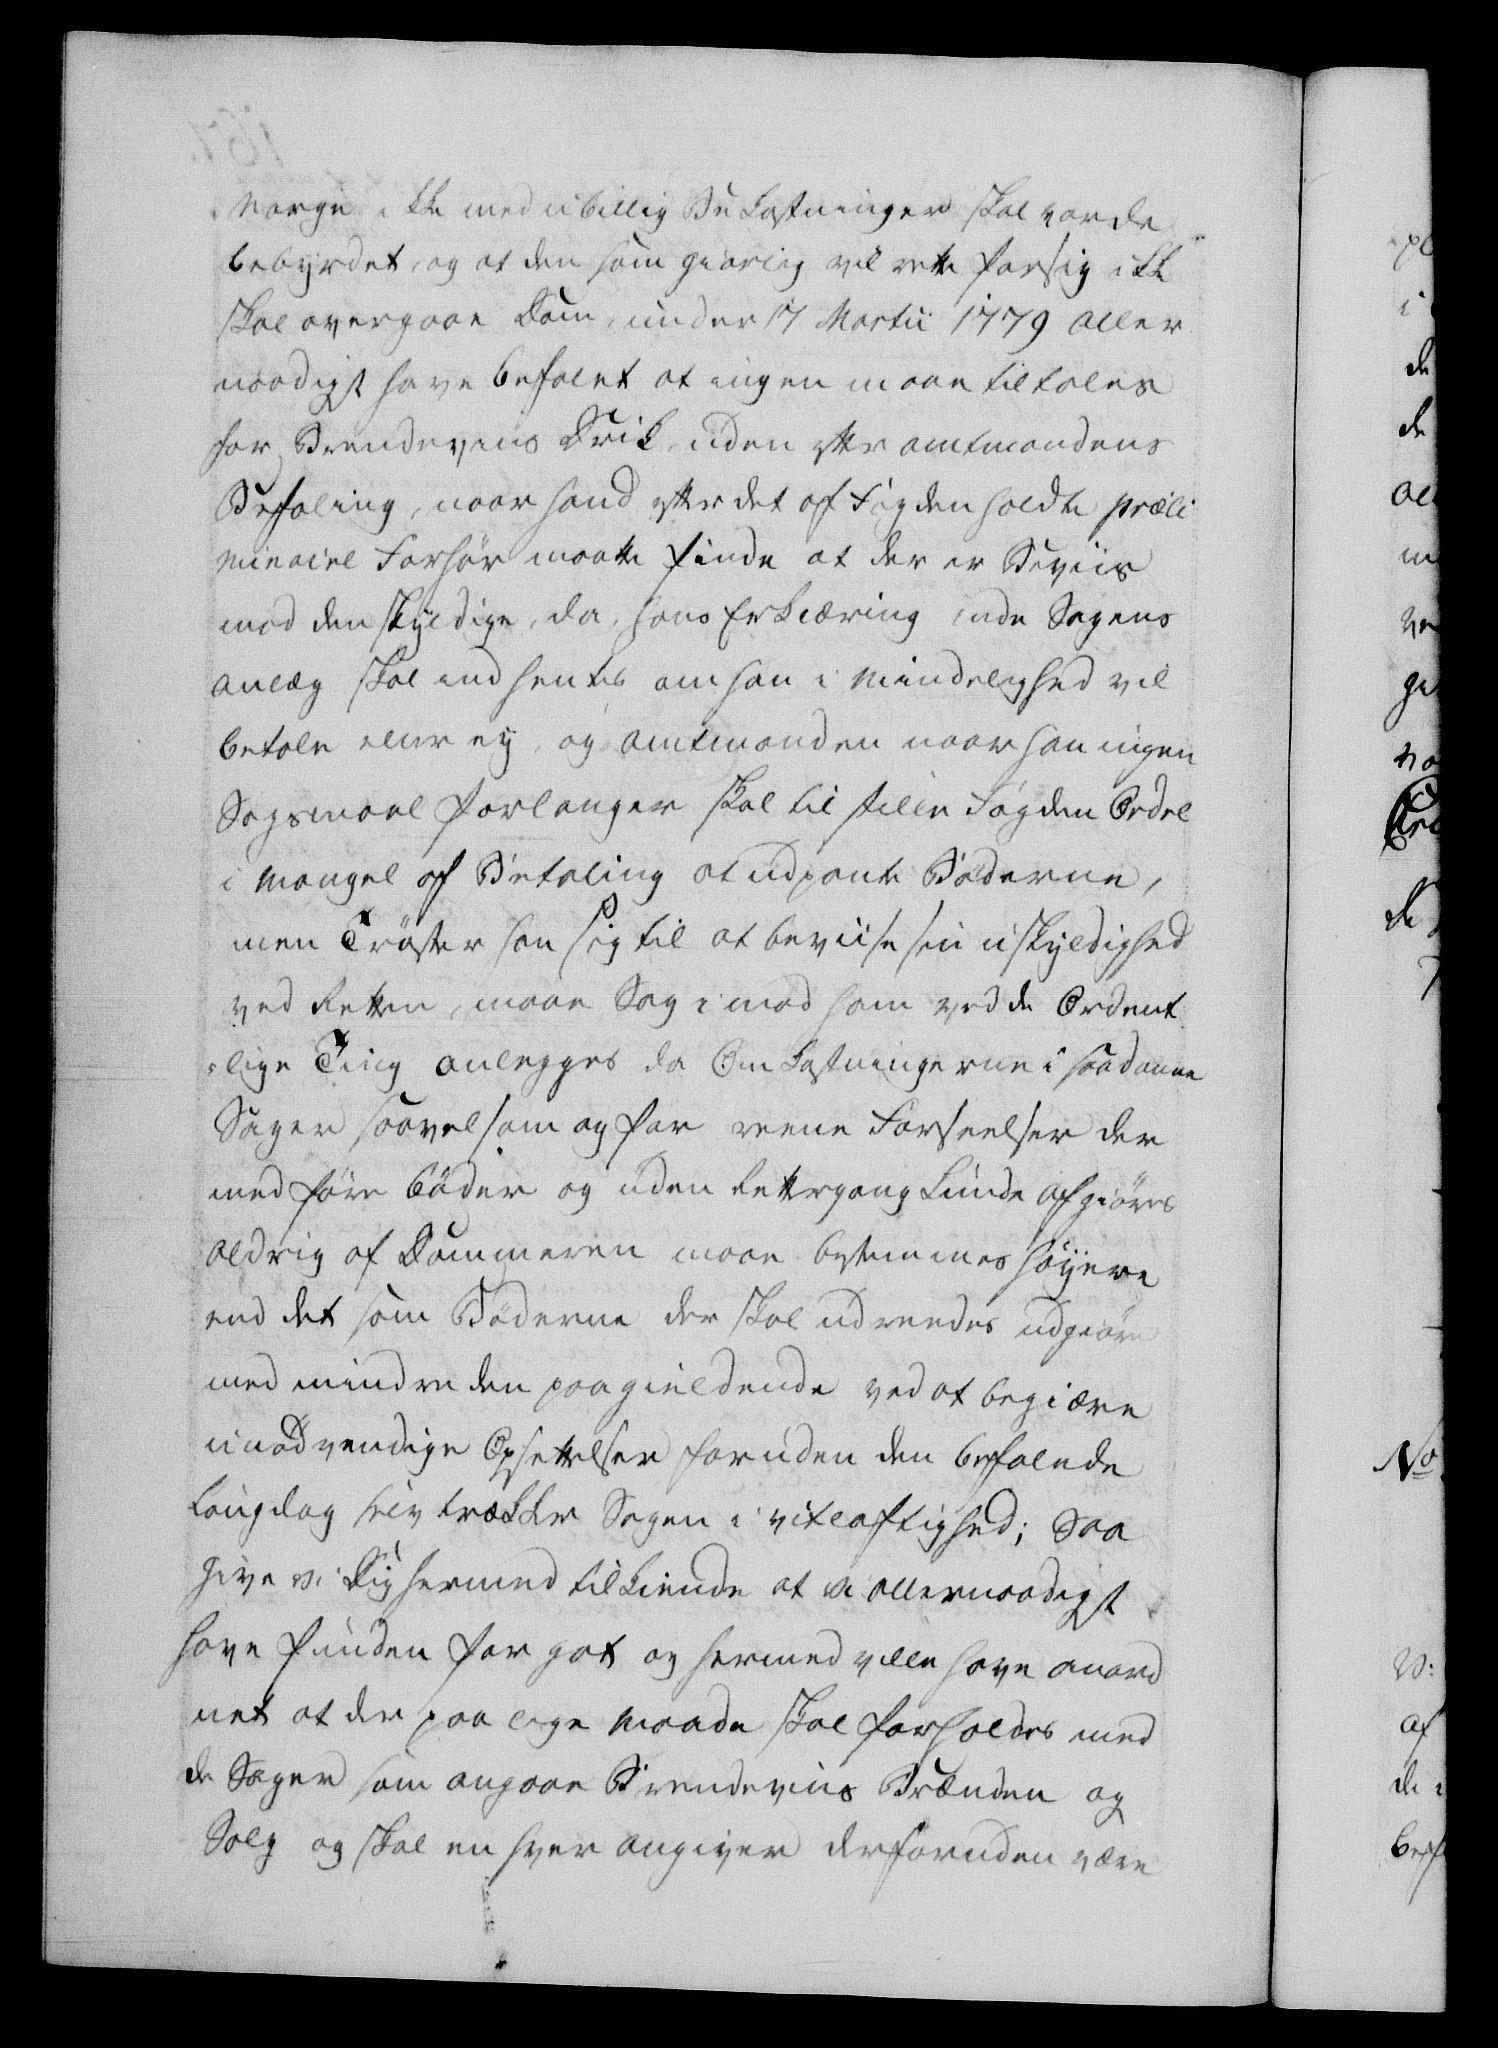 Norge ikke med ubillig Bekostninger skal vorde
bebyrdet, og at den som gierlig vil rette for sig ikke
skal overgaae Dom, under 17 Martii 1779 aller
naadigst have befalet at ingen maae tiltales
for Brendeviins Drik, uden efter amtmandens
Befaling, naar hand efter det af Fogden holdte præli
minairel Forhör maatte finde at der er Beviis
mod den skyldige, da hans Erklæring inde Sagens
anlæg skal indhentes om han i Mindelighed vil
betale eller ey, og amtmanden naar han ingen
Sagsmaal forlanger skal tilstille Fogden Ordre
i Mangel af Betaling at udpante Böderne,
men Tröster han sig til at beviise sin uskyldighed
ved Retten, maae Sag imod ham ved de Ordent
lige Ting anlegges da Omkostningerne i saadanne
Sager saavelsom og for reene Forseelser der
medföre böder og uden Rettergang kunde afgiöres
aldrig af Dommeren maae bestemmes höyere
end det som Böderne der skal udreedes udgiöre
med mindre den paagieldende ved at begiære
unödvendige Opsettelser foruden den befalede
Laugdag selv trækker Sagen i vitløftighed; Saa
give vi Dig hermed tilkiende at vi allernaadigst
have funden for got og hermed ville have anord
net at der paa lige Maade skal forholdes med
de Sager som angaae Brendeviins Brænden og
Salg og skal en hver angiver derforuden være